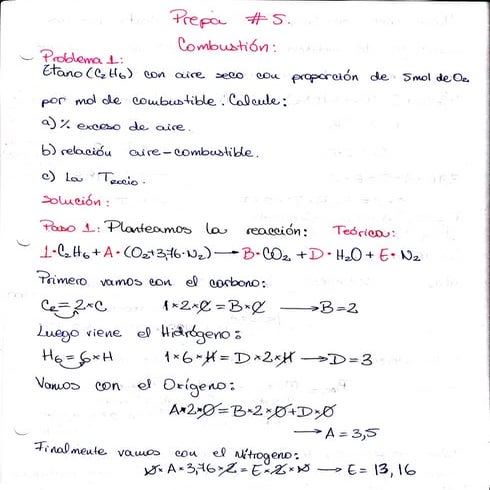 Prepa #5.
Combustión:
Problema 1:
Etano (C₂H₆) con aire seco con proporción de 5mol de O₂
por mol de combustible. Calcule:
a) % exceso de aire.
b) relación aire-combustible.
c) La Trocío.
Solución:
Paso 1: Planteamos la reacción: Teórica:
1·C₂H₆ + A·(O₂+3,76·N₂) → B·CO₂ + D·H₂O + E·N₂
Primero vamos con el carbono:
C₂ = 2×C 1×2×C = B×C → B=2
Luego viene el Hidrógeno:
H₆ = 6×H 1×6×H = D×2×H → D=3
Vamos con el Oxígeno:
A×2×O = B×2×O + D×O
→ A = 3,5
Finalmente vamos con el Nitrógeno:
N×A×3,76×2 = E×2×N → E = 13,16